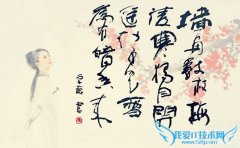 墙角数枝梅
凌寒独自開
遥知不是雪
為有暗香来
我爱IT技术网